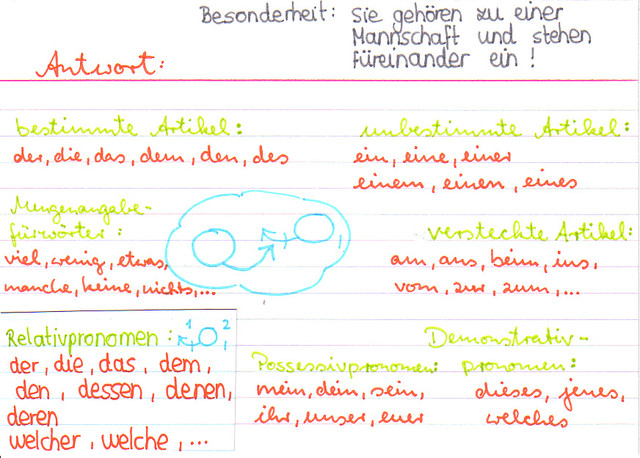 Besonderheit: Sie gehören zu einer
Mannschaft und stehen
füreinander ein!
Antwort:
bestimmte Artikel:
der, die, das, dem, den, des
unbestimmte Artikel:
ein, eine, einer
einem, einen, eines
Mengenangabe-
fürwörter:
viel, wenig, etwas,
manche, keine, nichts,...
versteckte Artikel:
am, ans, beim, ins,
vom, zur, zum,...
Relativpronomen: 1 2
der, die, das, dem,
den, dessen, denen,
deren
welcher, welche,...
Possessivpronomen:
mein, dein, sein,
ihr, unser, euer
Demonstrativ-
pronomen:
dieses, jenes,
welches